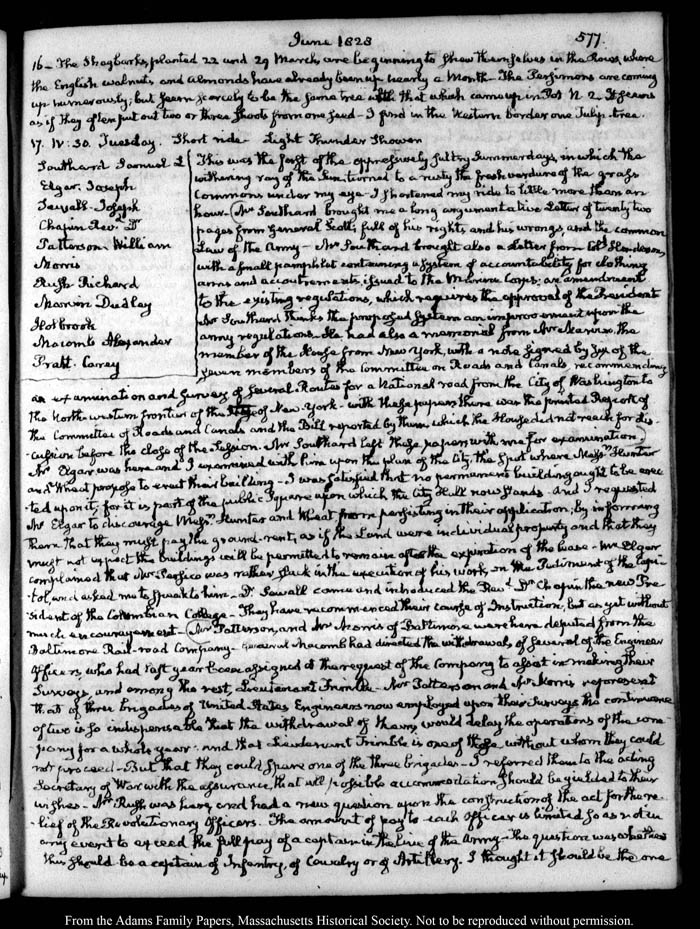 June 1828
577.
16 – The Shagbarks, planted 22 and 29 March, are beginning to shew themselves in the Rows, where
the English walnuts and Almonds have already been up nearly a Month – The Persimons are coming
up numerously; but seem scarcely to be the same tree with that which came up in Pot N. 2. It seems
as if they often put out two or three shoots from one seed – I find in the Western border one Tulip-tree.
17. IV:30. Tuesday. Short ride – Light Thunder Shower
Southard Samuel L
Elgar. Joseph
Sewall. Joseph
Chapin Rev.d Dr
Patterson William
Morris
Rush Richard
Marvin Dudley
Holbrook
Macomb Alexander
Pratt. Carey
This was the first of the oppressively sultry Summer days, in which the
withering ray of the Sun, turned to a rusty the fresh verdure of the grass
commons under my eye – I shortened my ride to little more than an
hour – Mr Southard brought me a long argumentative Letter of twenty two
pages from General Scott, full of his rights, and his wrongs, and the common
Law of the Army – Mr Southard brought also a Letter from Col.l Henderson,
with a small pamphlet containing a System of accountability for clothing
arms and accoutrements, issued to the Marine Corps; an amendment
to the existing regulations, which requires the approval of the President
Mr Southard thinks the proposed System an improvement upon the
army regulations – He had also a memorial from Mr Marvin, the
member of the House from New York, with a note signed by six of the
seven members of the Committee on Roads and Canals, recommending
an examination and Survey of several Routes for a National road from the City of Washington to
the North-western frontier of the State of New-York – with these papers there was the printed Report of
the Committee of Roads and Canals and the Bill reported by them, which the House did not reach for dis-
cussion before the close of the Session. Mr Southard left these papers with me for examination.
Mr Elgar was here and I examined with him upon the plan of the City, the Spot where Mess.rs Hunter
and Wheat propose to erect their building – I was satisfied that no permanent building ought to be erec
ted upon it; for it is part of the public Square upon which the City Hall now stands – and I requested
Mr Elgar to discourage Mess.rs Hunter and Wheat from persisting in their application; by informing
them that they must pay the ground-rent, as if the Land were individual property and that they
must not expect the buildings will be permitted to remain after the expiration of the lease – Mr Elgar
complained that Mr Persico was rather slack in the execution of his work, on the Pediment of the Capi-
tol and asked me to speak to him – Dr Sewall came and introduced the Rev.d Dr Chapin the new Pre-
sident of the Columbian College – They have recommenced their course of Instruction, but as yet without
much encouragement – Mr Patterson, and Mr Morris of Baltimore were here deputed from the
Baltimore Rail-road Company – General Macomb had directed the withdrawal of several of the Engineer
Officers, who had last year been assigned at the request of the Company to assist in making their
Surveys, and among the rest, Lieutenant Trimble – Mr Patterson and Mr Morris represent
that of three brigades of United States Engineers now employed upon their Surveys the continuance
of two is so indispensable that the withdrawal of them, would delay the operations of the com-
pany for a whole year; and that Lieutenant Trimble is one of those without whom they could
not proceed – But that they could spare one of the three brigades – I referred them to the acting
Secretary of War with the assurance that all possible accommodation should be yielded to their
wishes – Mr Rush was here, and had a new question upon the construction of the act for the re-
lief of the Revolutionary Officers. The amount of pay to each Officer is limited so as not in
any event to exceed the full pay of a captain in the line of the Army – The question was whether
this should be a captain of Infantry, of Cavalry or of Artillery. I thought it should be the one
From the Adams Family Papers, Massachusetts Historical Society. Not to be reproduced without permission.